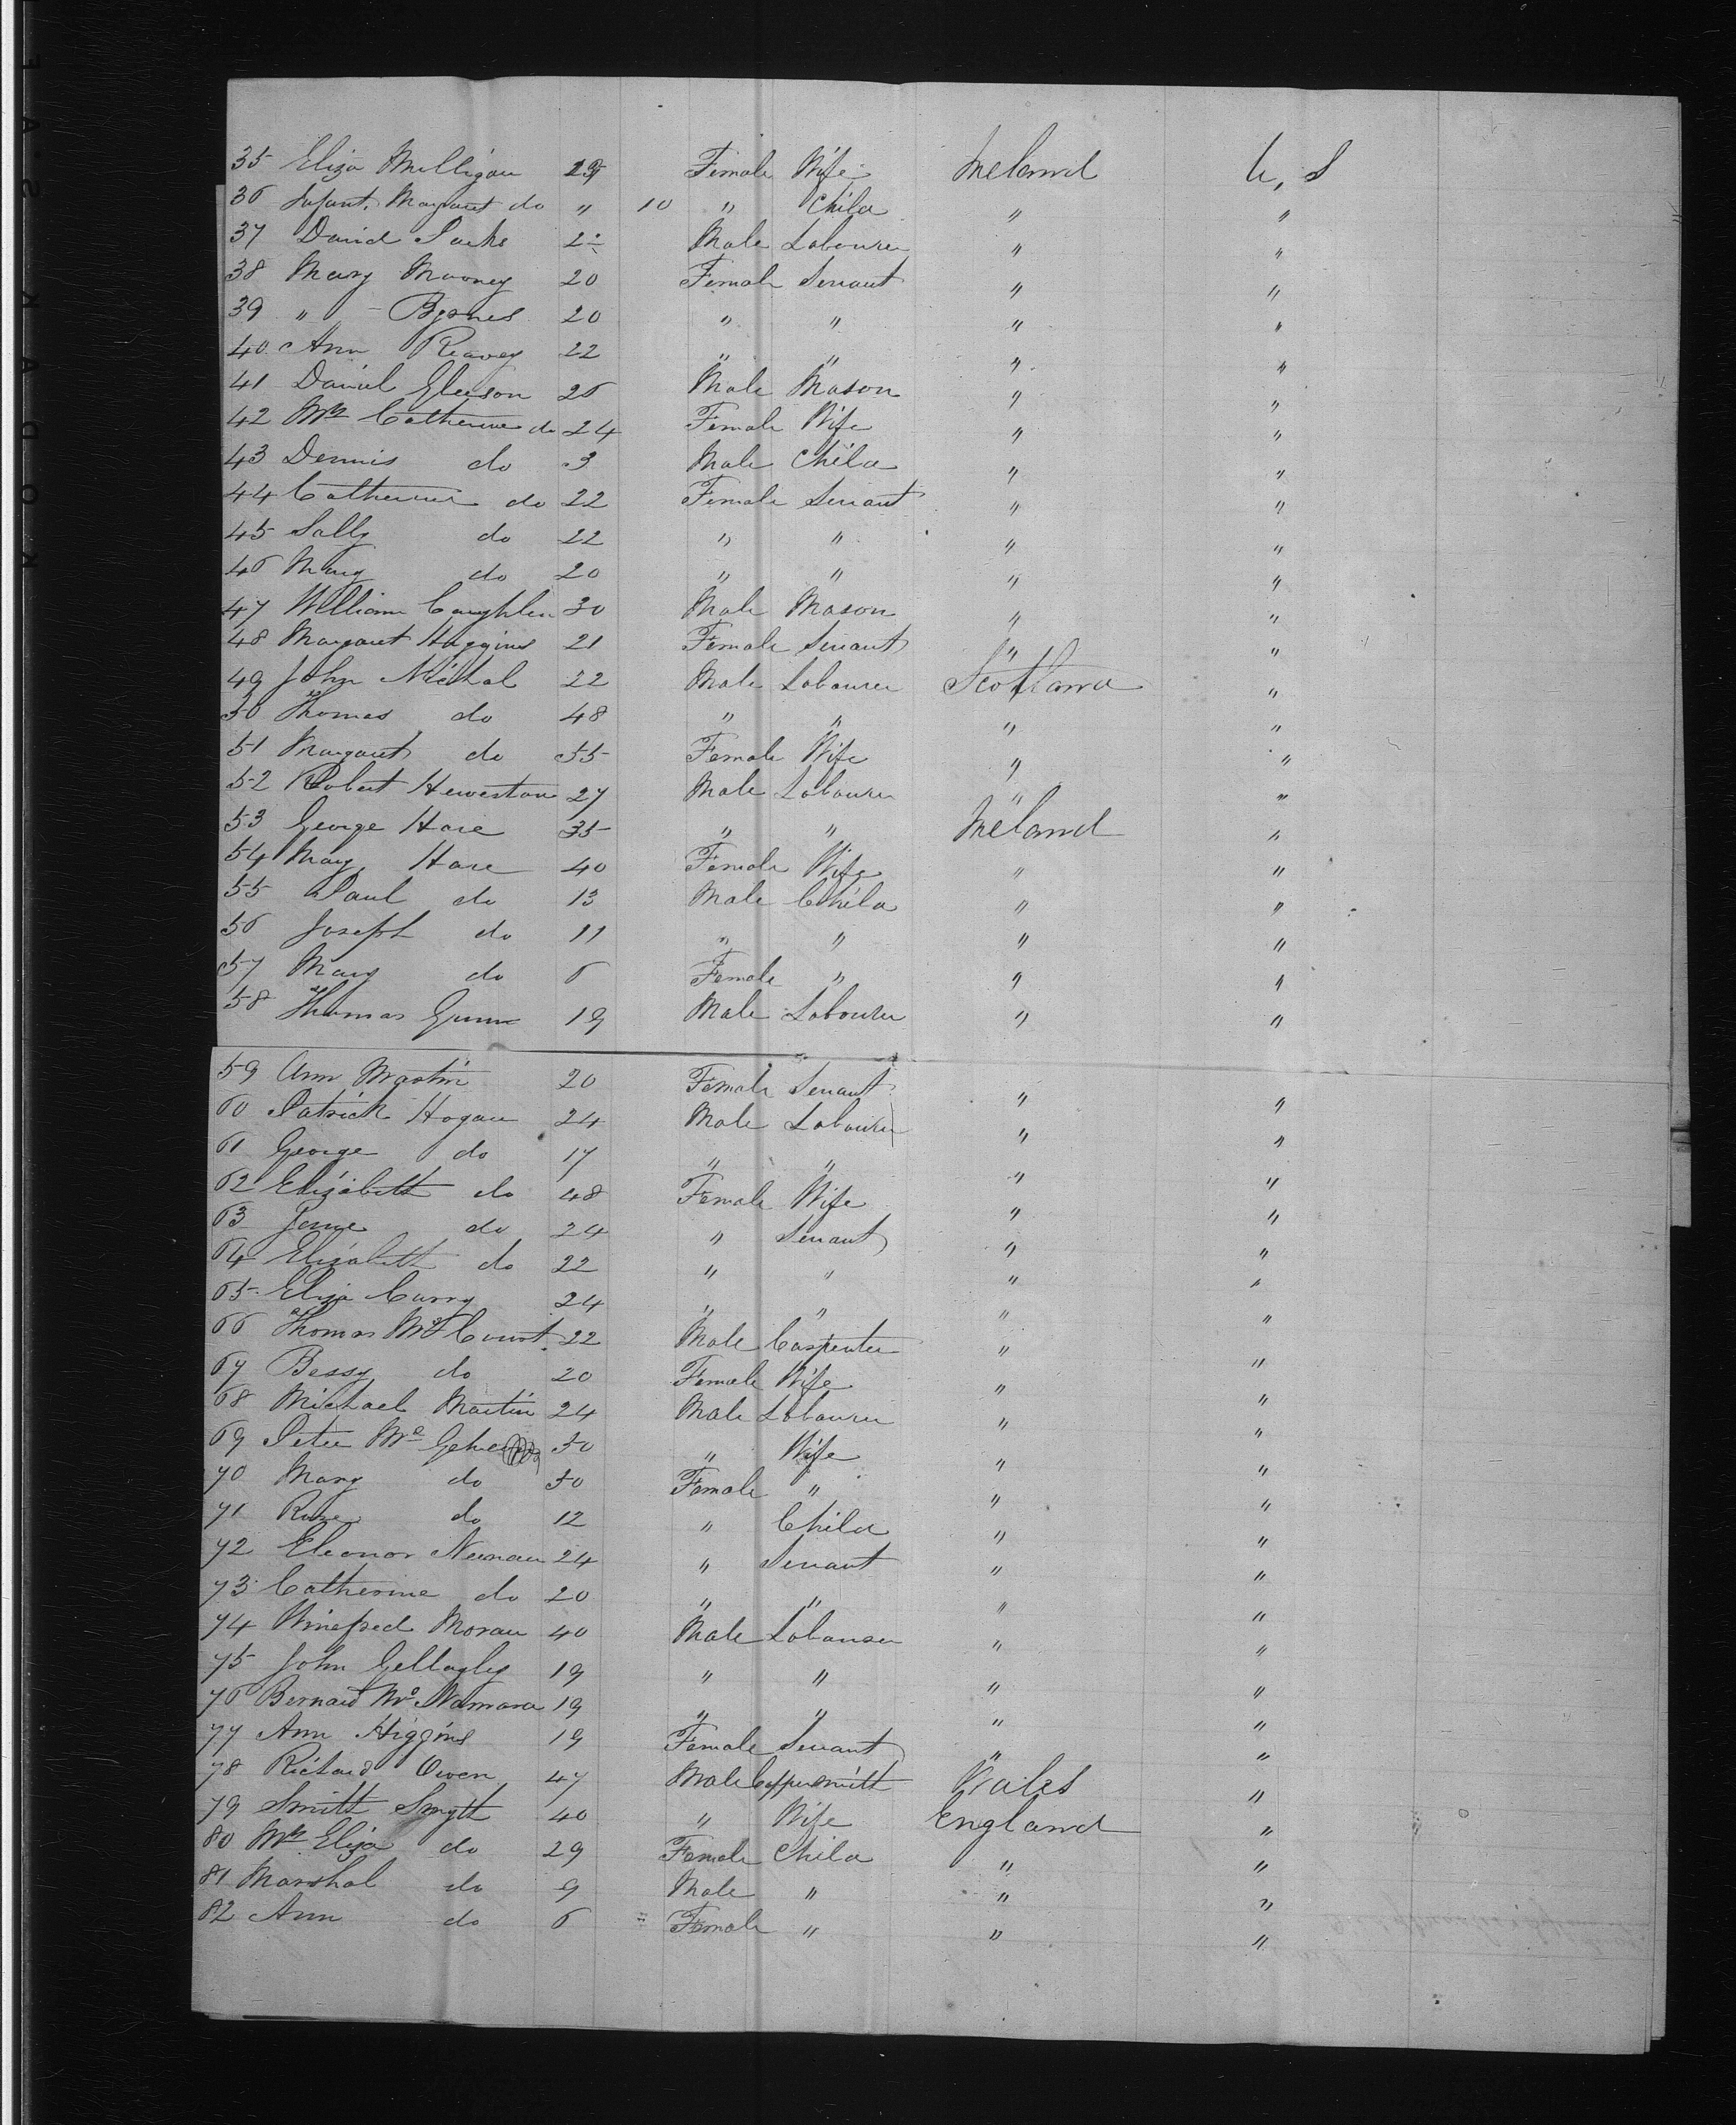 35 Eliza Milligan Female Wife Ireland U, S
36 Infant. Margaret do " 10 " Child " "
37 David Parks Male Labourer " "
38 Mary Mooney 20 Female Servant " "
39 " Byrnes 20 " " " "
40 Ann Reavey 22 " " " "
41 Daniel Gleeson 26 Male Mason " "
42 Mrs Catherine do 24 Female Wife " "
43 Dennis do 3 Male Child " "
44 Catherine do 22 Female Servant " "
45 Sally do 22 " " " "
46 Mary do 20 " " " "
47 William Caughlin 30 Male Mason " "
48 Margaret Huggins 21 Female Servant " "
49 John Nichal 22 Male Labourer Scotland "
50 Thomas do 48 " " " "
51 Margaret do 55 Female Wife " "
52 Robert Hewestan 27 Male Labourer " "
53 George Hare 35 " " Ireland "
54 Mary Hare 40 Female Wife " "
55 Paul do 13 Male Child " "
56 Joseph do 11 " " " "
57 Mary do 6 Female " " "
58 Thomas Gunn 19 Male Labourer " "
59 Ann Martin 20 Female Servant " "
60 Patrick Hogan 24 Male Labourer " "
61 George do 17 " " " "
62 Elizabeth do 48 Female Wife " "
63 Jane do 24 " Servant " "
64 Elizabeth do 22 " " " "
65 Eliza Curry 24 " " " "
66 Thomas McCourt 22 Male Carpenter " "
67 Bessy do 20 Female Wife " "
68 Michael Martin 24 Male Labourer " "
69 Peter Mc 50 " Wife " "
70 Mary do 50 Female " " "
71 Rose do 12 " Child " "
72 Eleonor Neenan 24 " Servant " "
73 Catherine do 20 " " " "
74 Winefred Moran 40 Male Labourer " "
75 John Gellagly 19 " " " "
76 Bernard Mc Namara 19 " " " "
77 Ann Higgins 19 Female Servant " "
78 Richard Owen 47 Male Coppersmith Wales "
79 Smith Smyth 40 " Wife England "
80 Mrs Eliza do 29 Female Child " "
81 Marshal do 9 Male " " "
82 Ann do 6 Female " " "